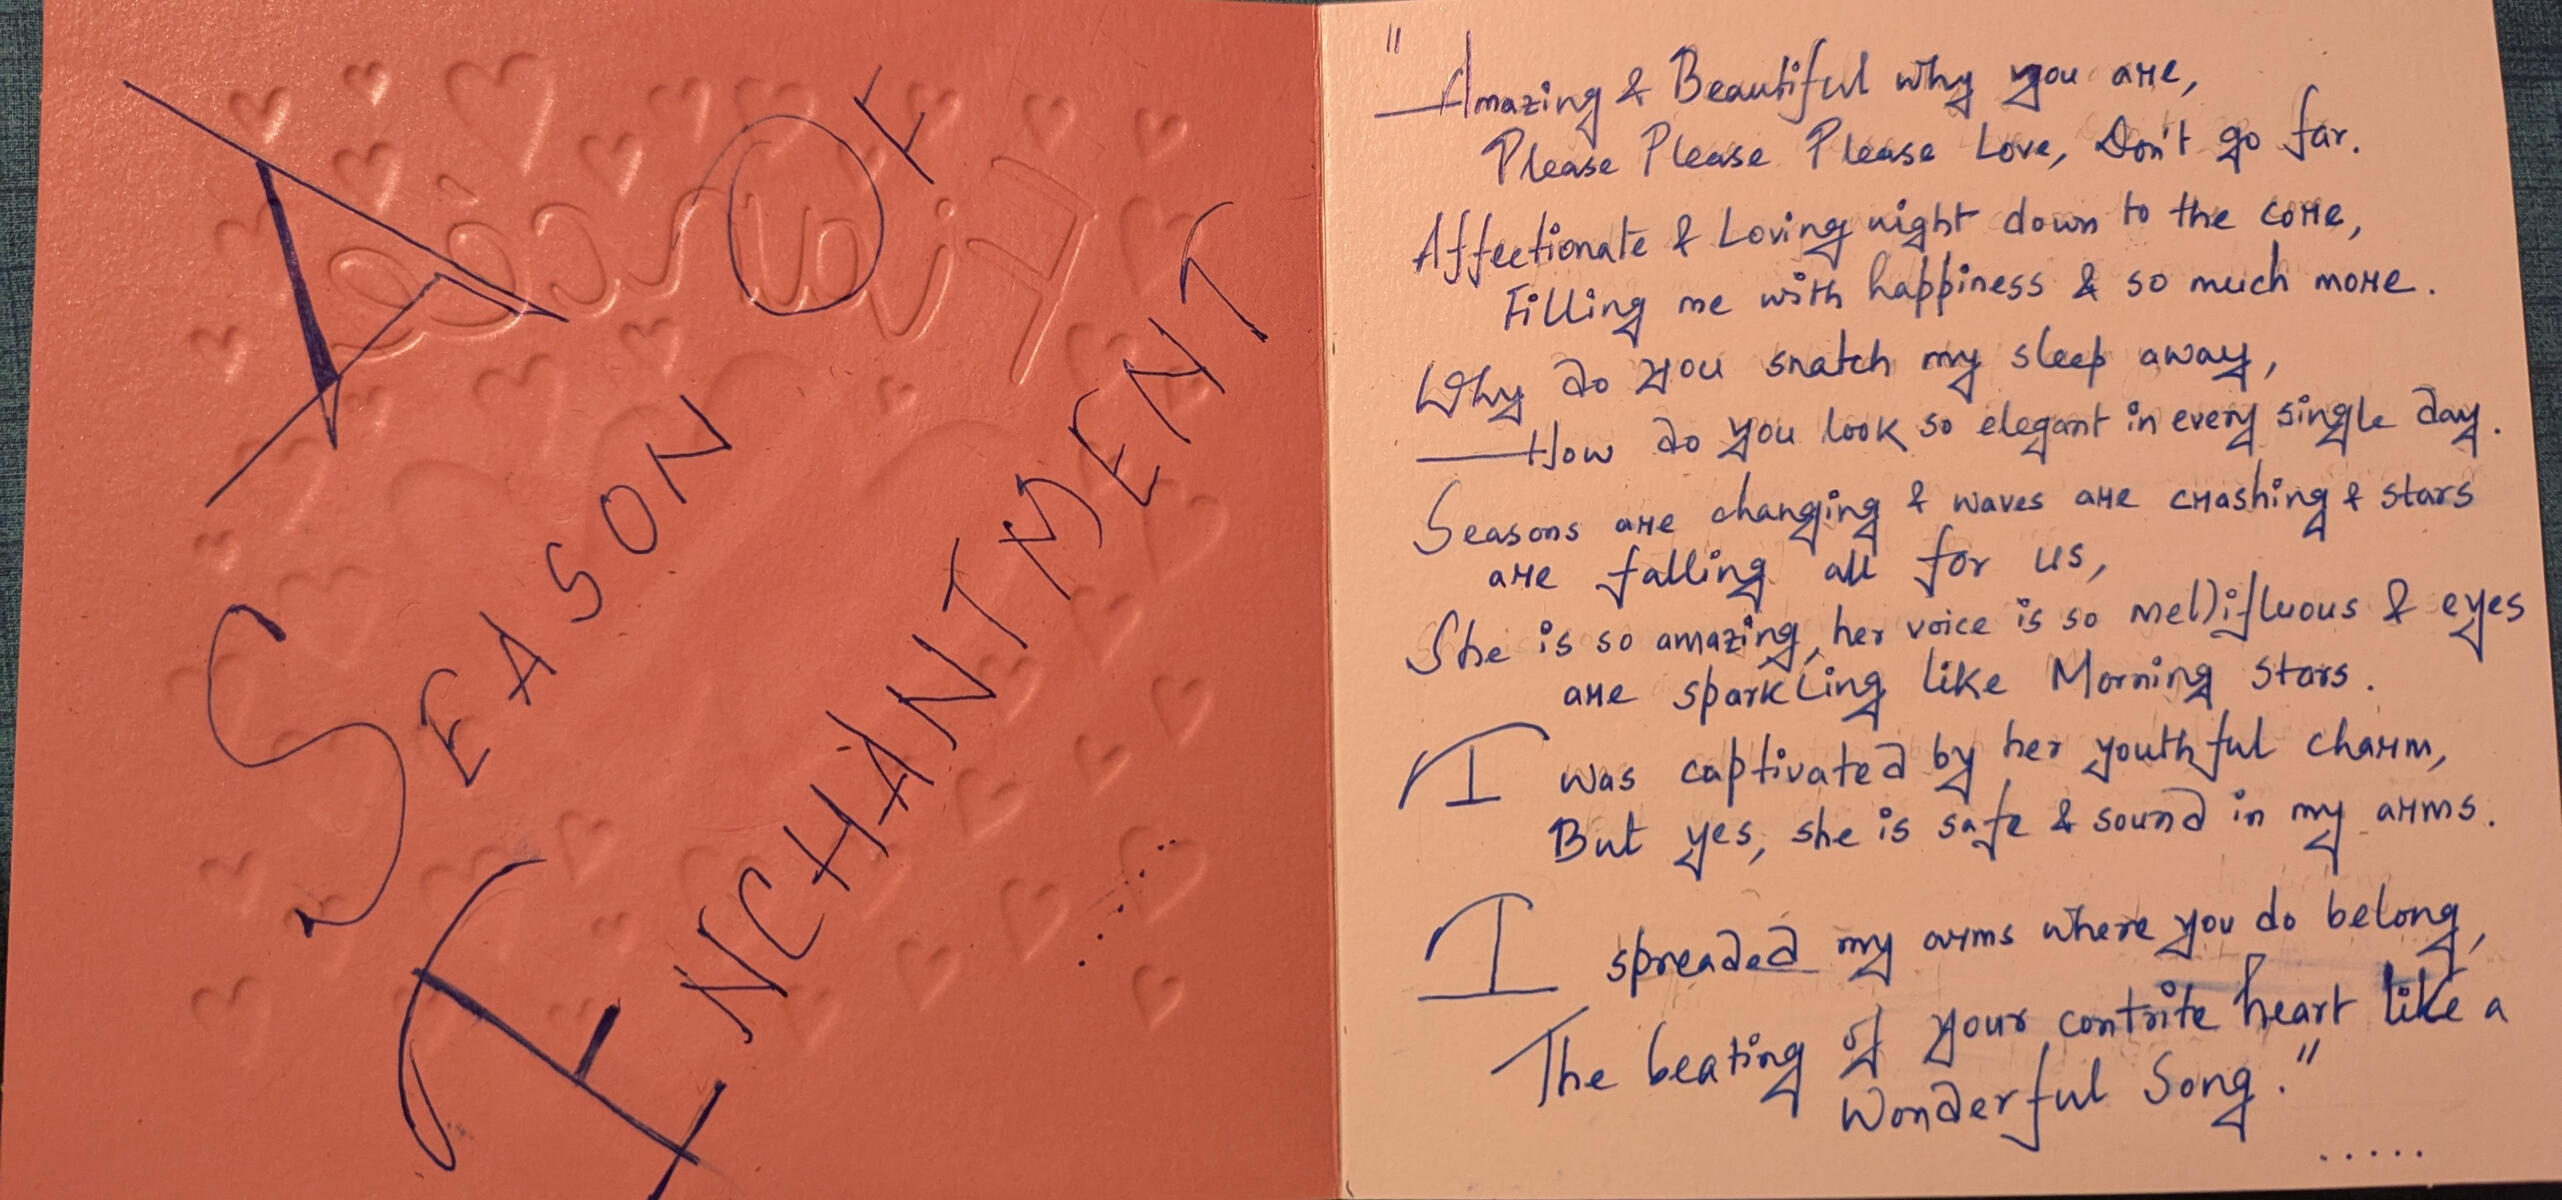 A
SEASON OF
ENCHANTMENT
.....
Fiancée
" Amazing & Beautiful why you are,
Please Please Please Love, Don't go far.
Affectionate & Loving right down to the core,
Filling me with happiness & so much more.
Why do you snatch my sleep away,
How do you look so elegant in every single day.
Seasons are changing & waves are crashing & stars
are falling all for us,
She is so amazing, her voice is so mellifluous & eyes
are sparkling like Morning stars.
I was captivated by her youthful charm,
But yes, she is safe & sound in my arms.
I spreaded my arms where you do belong,
The beating of your contrite heart like a
Wonderful Song."
.....